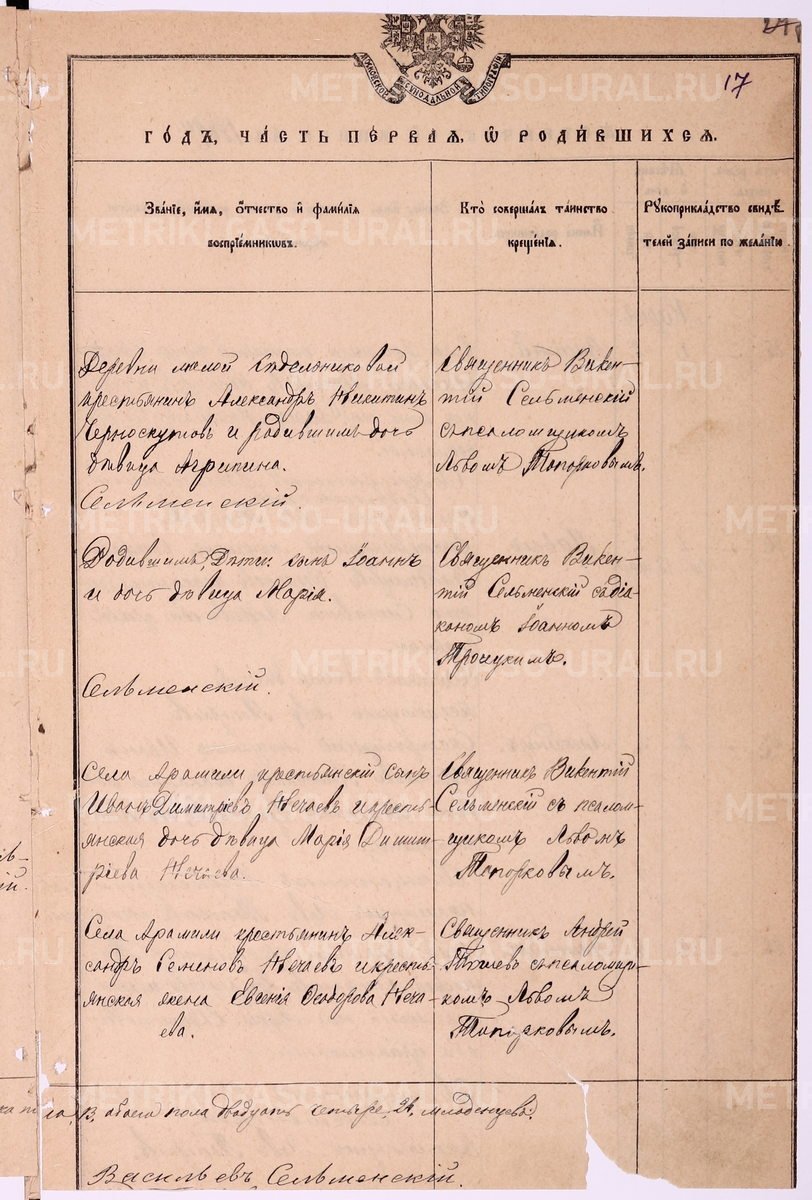 17
МОСКОВСКОЙ СѴНОДАЛЬНОЙ ТИПОГРАФІИ
METRIKI.GASO-URAL.RU
ГО́ДЪ, ЧА́СТЬ ПЕ́РВАѦ, Ѽ РОДИ́ВШИХСѦ.
Зва́нїе, и́мѧ, ѻ́тчество и҆ фами́лїѧ
воспрїе́мникѡвъ.
Кто̀ соверша́лъ та́инство
креще́нїѧ.
Рꙋкоприкла́дство свидѣ́-
телей за́писи по жела́нїю.
Деревни малой
крестьянинъ Александръ Никитинъ
Черноскутовъ и родившимъ дочь
дѣвица Агрипина.
Сельменскій.
Священникъ Викен-
тій Сельменскій
съ псаломщикомъ
Львомъ Топорковымъ.
Родившимъ дѣти: сынъ Іоаннъ
и дочь дѣвица Марія.
Сельменскій.
Священникъ Викен-
тій Сельменскій съ діа-
кономъ Іоанномъ
Троицкимъ.
Села Арамили крестьянскій сынъ
Иванъ Димитріевъ Нечаевъ и кресть-
янская дочь дѣвица Марія Димит-
ріева Нечаева.
Священникъ Викентій
Сельменскій съ псалом-
щикомъ Львомъ
Топорковымъ.
Села Арамили крестьянинъ Алек-
сандръ Семеновъ Нечаевъ и кресть-
янская жена Евгенія Ѳеодорова Неча-
ева.
Священникъ Андрей
съ псаломщи-
комъ Львомъ
Топорковымъ.
обоего пола двадцать четыре, 24, младенцевъ.
Васильевъ Сельменскій.